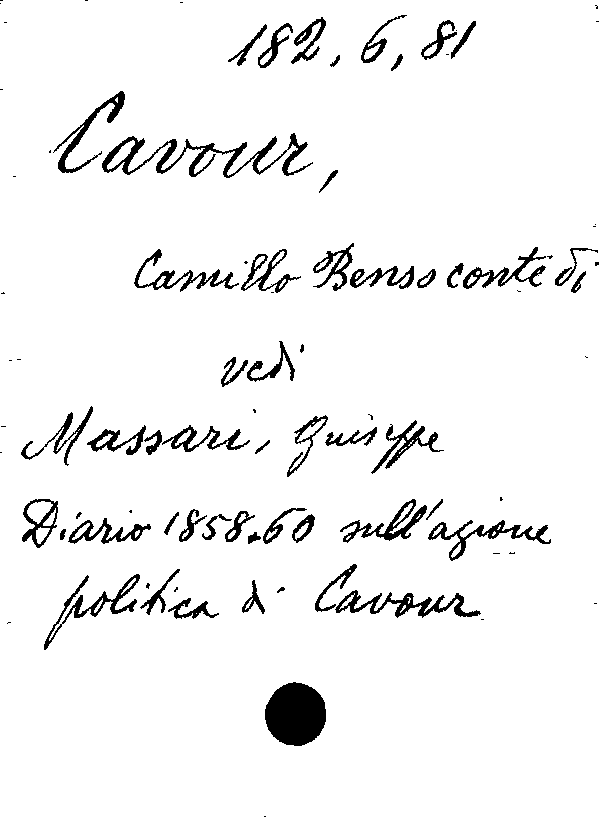 182, 6, 81
Cavour,
Camillo Benso conte di
vedi
Massari, Guiseppe
Diario 1858-60 sull'azione
politica di Cavour